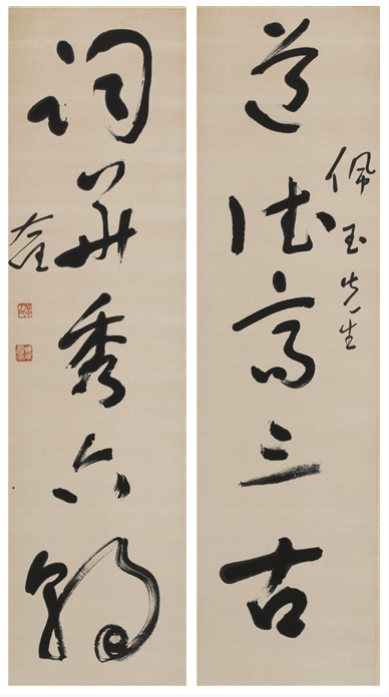 佩玉先生
道德高三古
詞華秀六朝
右任